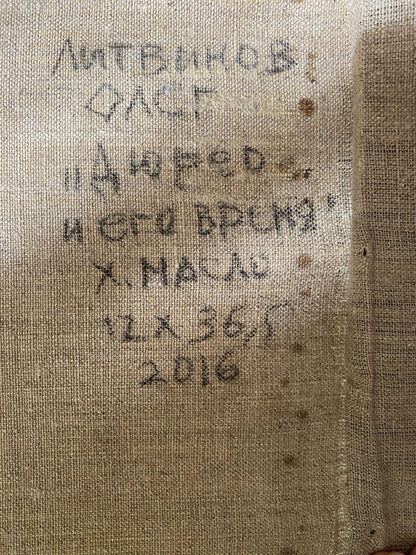 ЛИТВИНОВ
ОЛЕГ
"ДЮРЕР
И ЕГО ВРЕМЯ"
Х. МАСЛО
12 X 36,5
2016